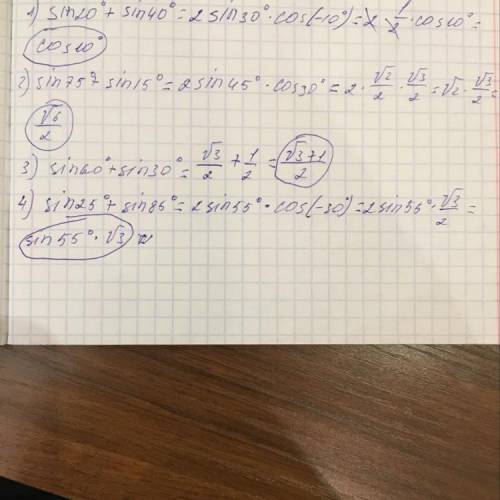 1) sin20° + sin40° = 2 sin30° · cos(-10°) = 2 · 1/2 · cos10° =
cos10°
2) sin75° + sin15° = 2 sin45° · cos30° = 2 · √2/2 · √3/2 = √2 · √3/2 =
√6/2
3) sin60° + sin30° = √3/2 + 1/2 = √3+1/2
4) sin25° + sin85° = 2 sin55° · cos(-30°) = 2 sin55° · √3/2 =
sin55° · √3